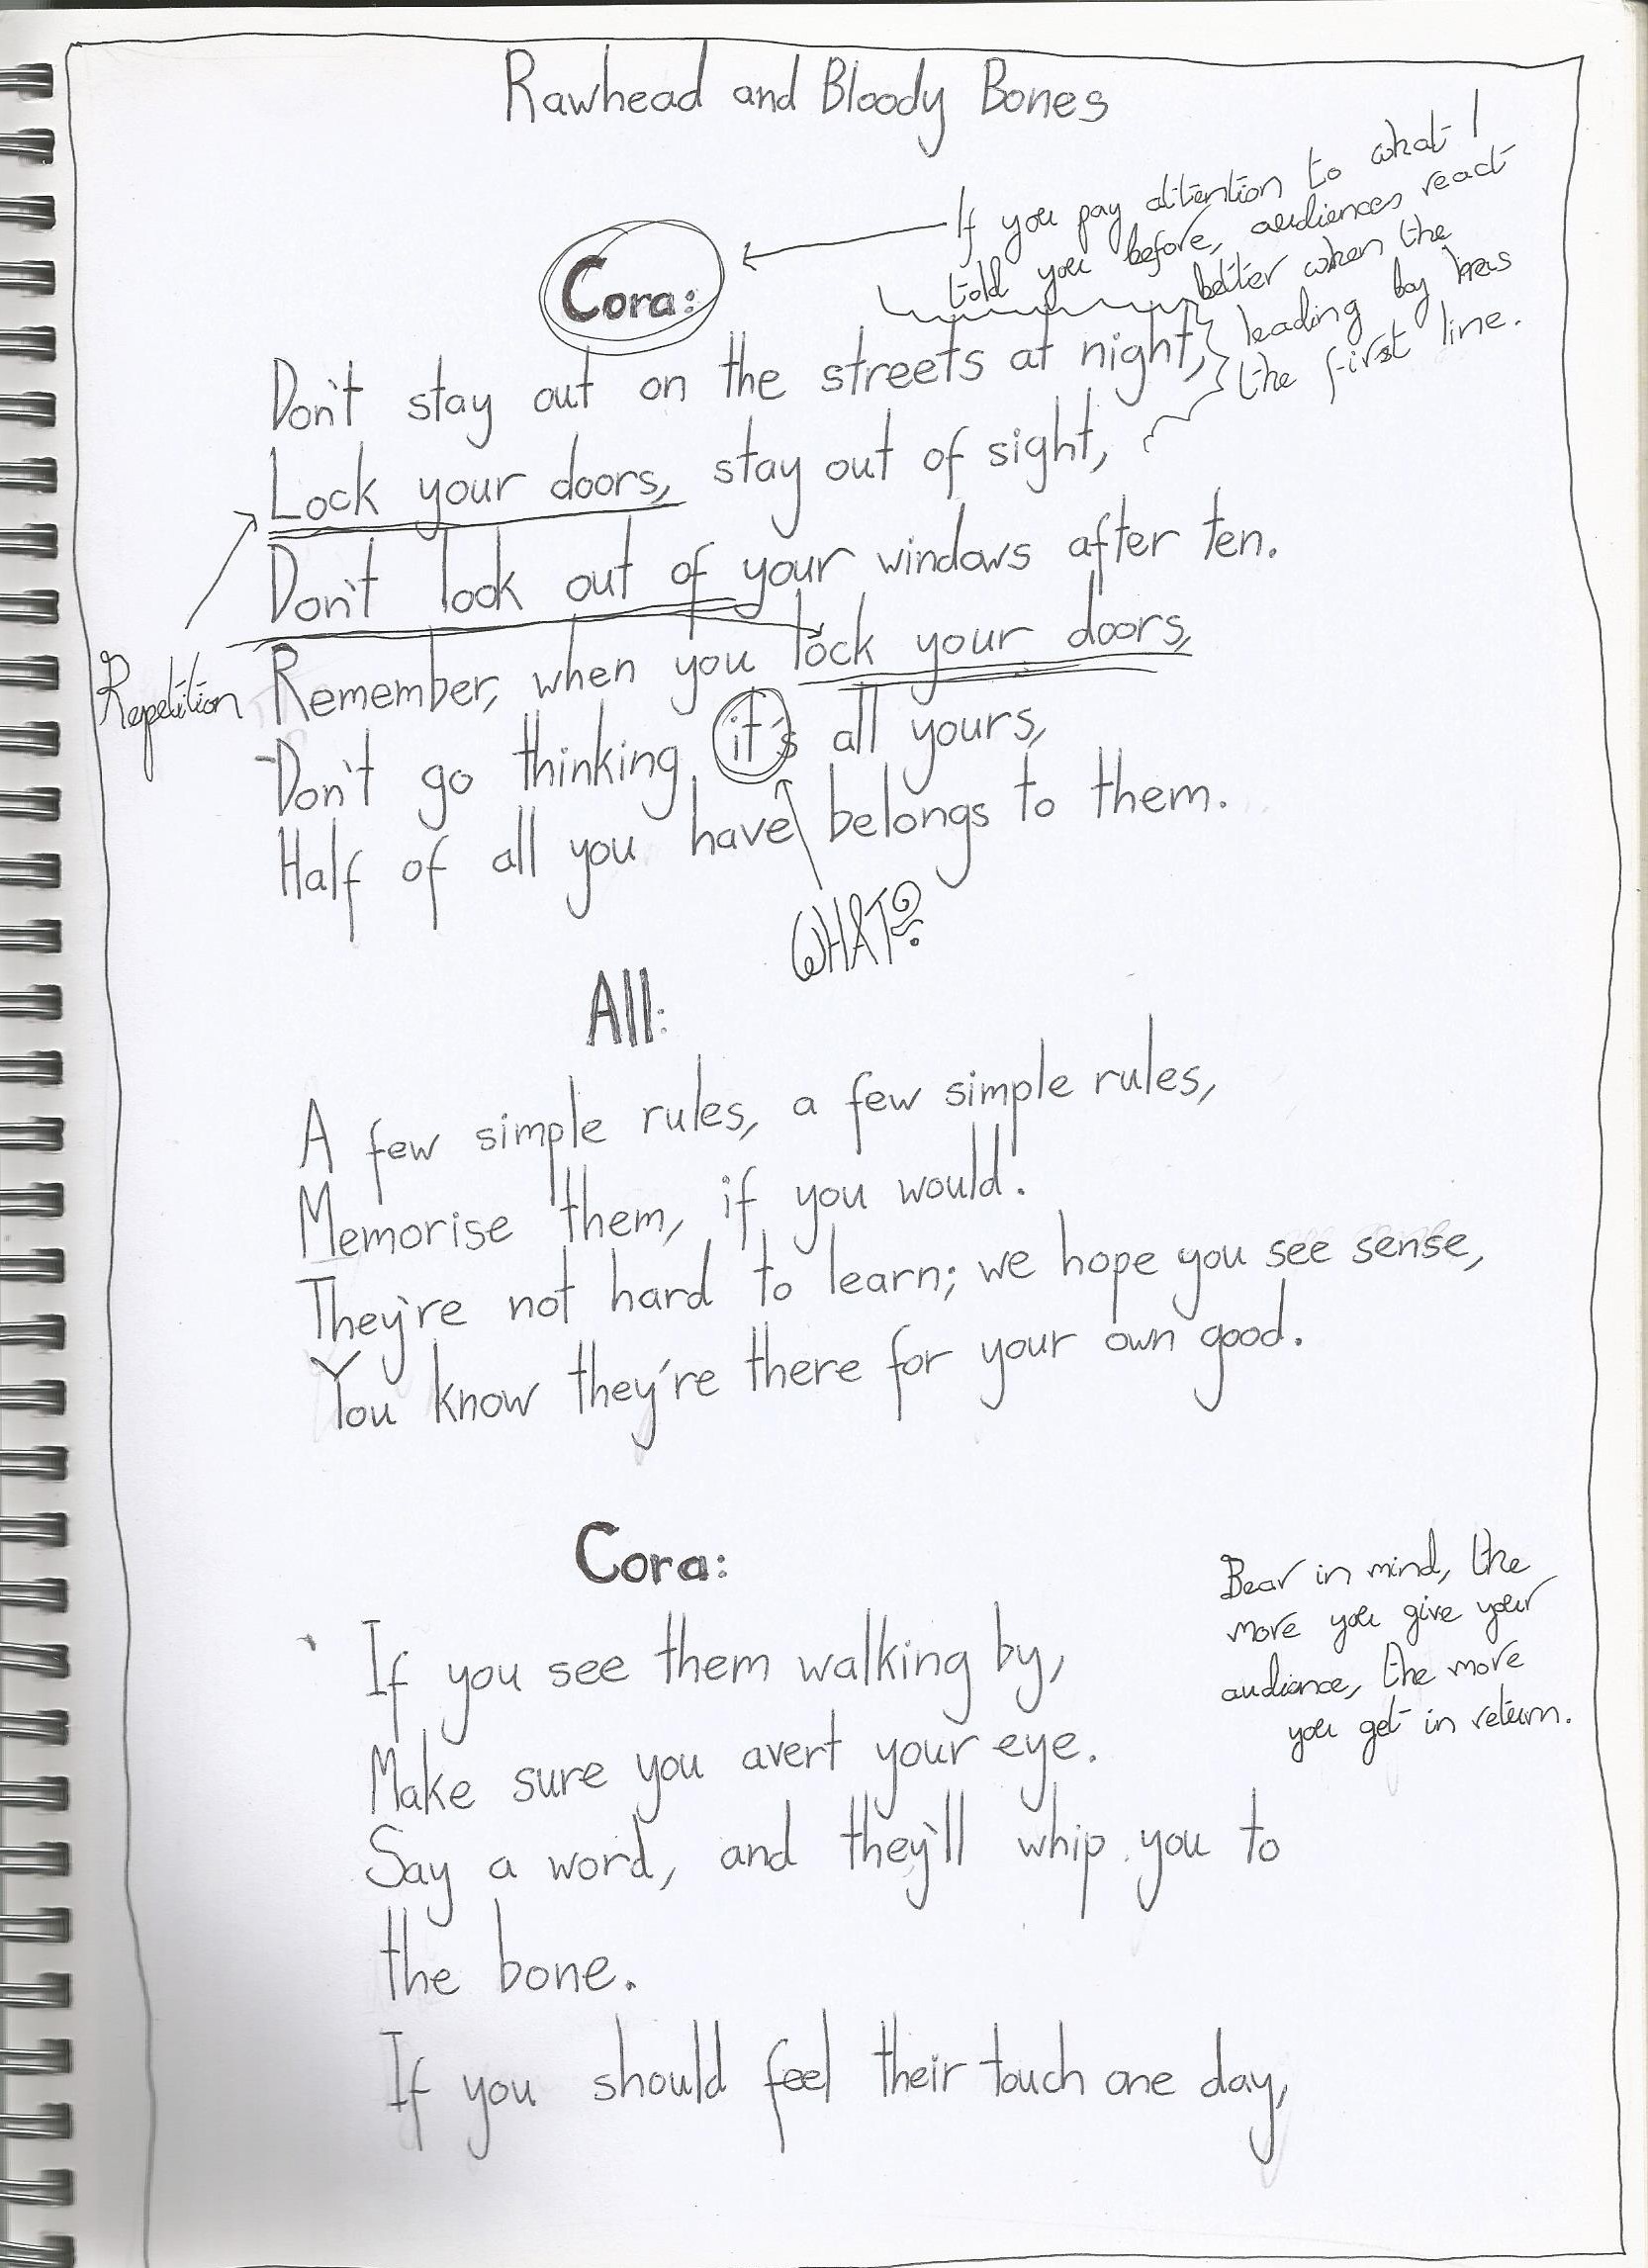 Rawhead and Bloody Bones
If you pay attention to what I
told you before, audiences react
better when the
leading boy has
the first line.
Cora:
Don't stay out on the streets at night,
Lock your doors, stay out of sight,
Don't look out of your windows after ten.
Repetition
Remember, when you lock your doors,
Don't go thinking it's all yours,
Half of all you have belongs to them.
WHAT?
All:
A few simple rules, a few simple rules,
Memorise them, if you would.
They're not hard to learn; we hope you see sense,
You know they're there for your own good.
Cora:
If you see them walking by,
Make sure you avert your eye.
Say a word, and they'll whip you to
the bone.
If you should feel their touch one day,
Bear in mind, the
more you give your
audience, the more
you get in return.